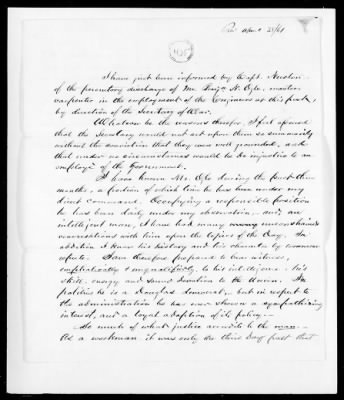 I have just been informed by Capt. Newton
of the peremptory discharge of Mr. H. Ogle, master
carpenter in the employment of the Engineers at this post,
by direction of the Secretary of War.
Whatever be the reasons therefor, I feel assured
that the Secretary would not act upon them so summarily
without the conviction that they were well grounded, and
that under no circumstances would he do injustice to an
employé of the Government.
I have known Mr. Ogle during the past three
months, a portion of which time he has been under my
direct command. Occupying a responsible position
he has been daily under my observation, and, an
intelligent man, I have had many unconstrained
conversations with him upon the topics of the Day. In
addition I know his history and his character by common
repute. I am therefore prepared to bear witness,
emphatically & unqualifiedly, to his intelligence, his
skill, energy and devotion to the
politics he is a Douglas democrat, but in respect to
the administration he has ever shown a sympathizing
interest, and a loyal adoption of its policy.
So much of what justice accords to the man.
As a workman it was only the third day past that